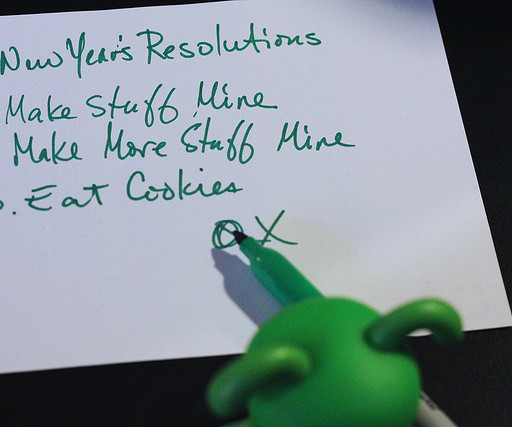 New Year's Resolutions
Make Stuff Mine
Make More Stuff Mine
. Eat Cookies
X